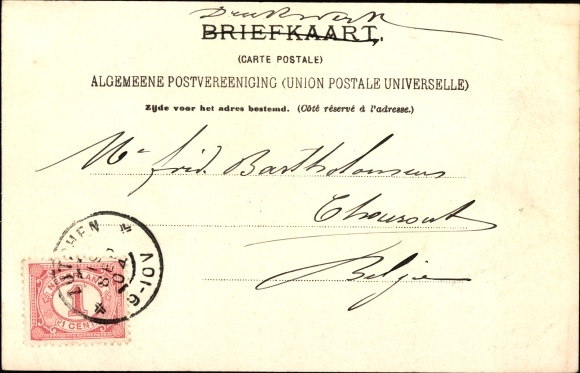 Drukwerk
BRIEFKAART.
(CARTE POSTALE)
ALGEMEENE POSTVEREENIGING (UNION POSTALE UNIVERSELLE)
Zijde voor het adres bestemd. (Côté réservé à l'adresse.)
Mr fréd. Bartholomeus
Thourout
Belgie
ZUTPHEN
SEP
04
6-10V
NEDERLAND
1
CENT